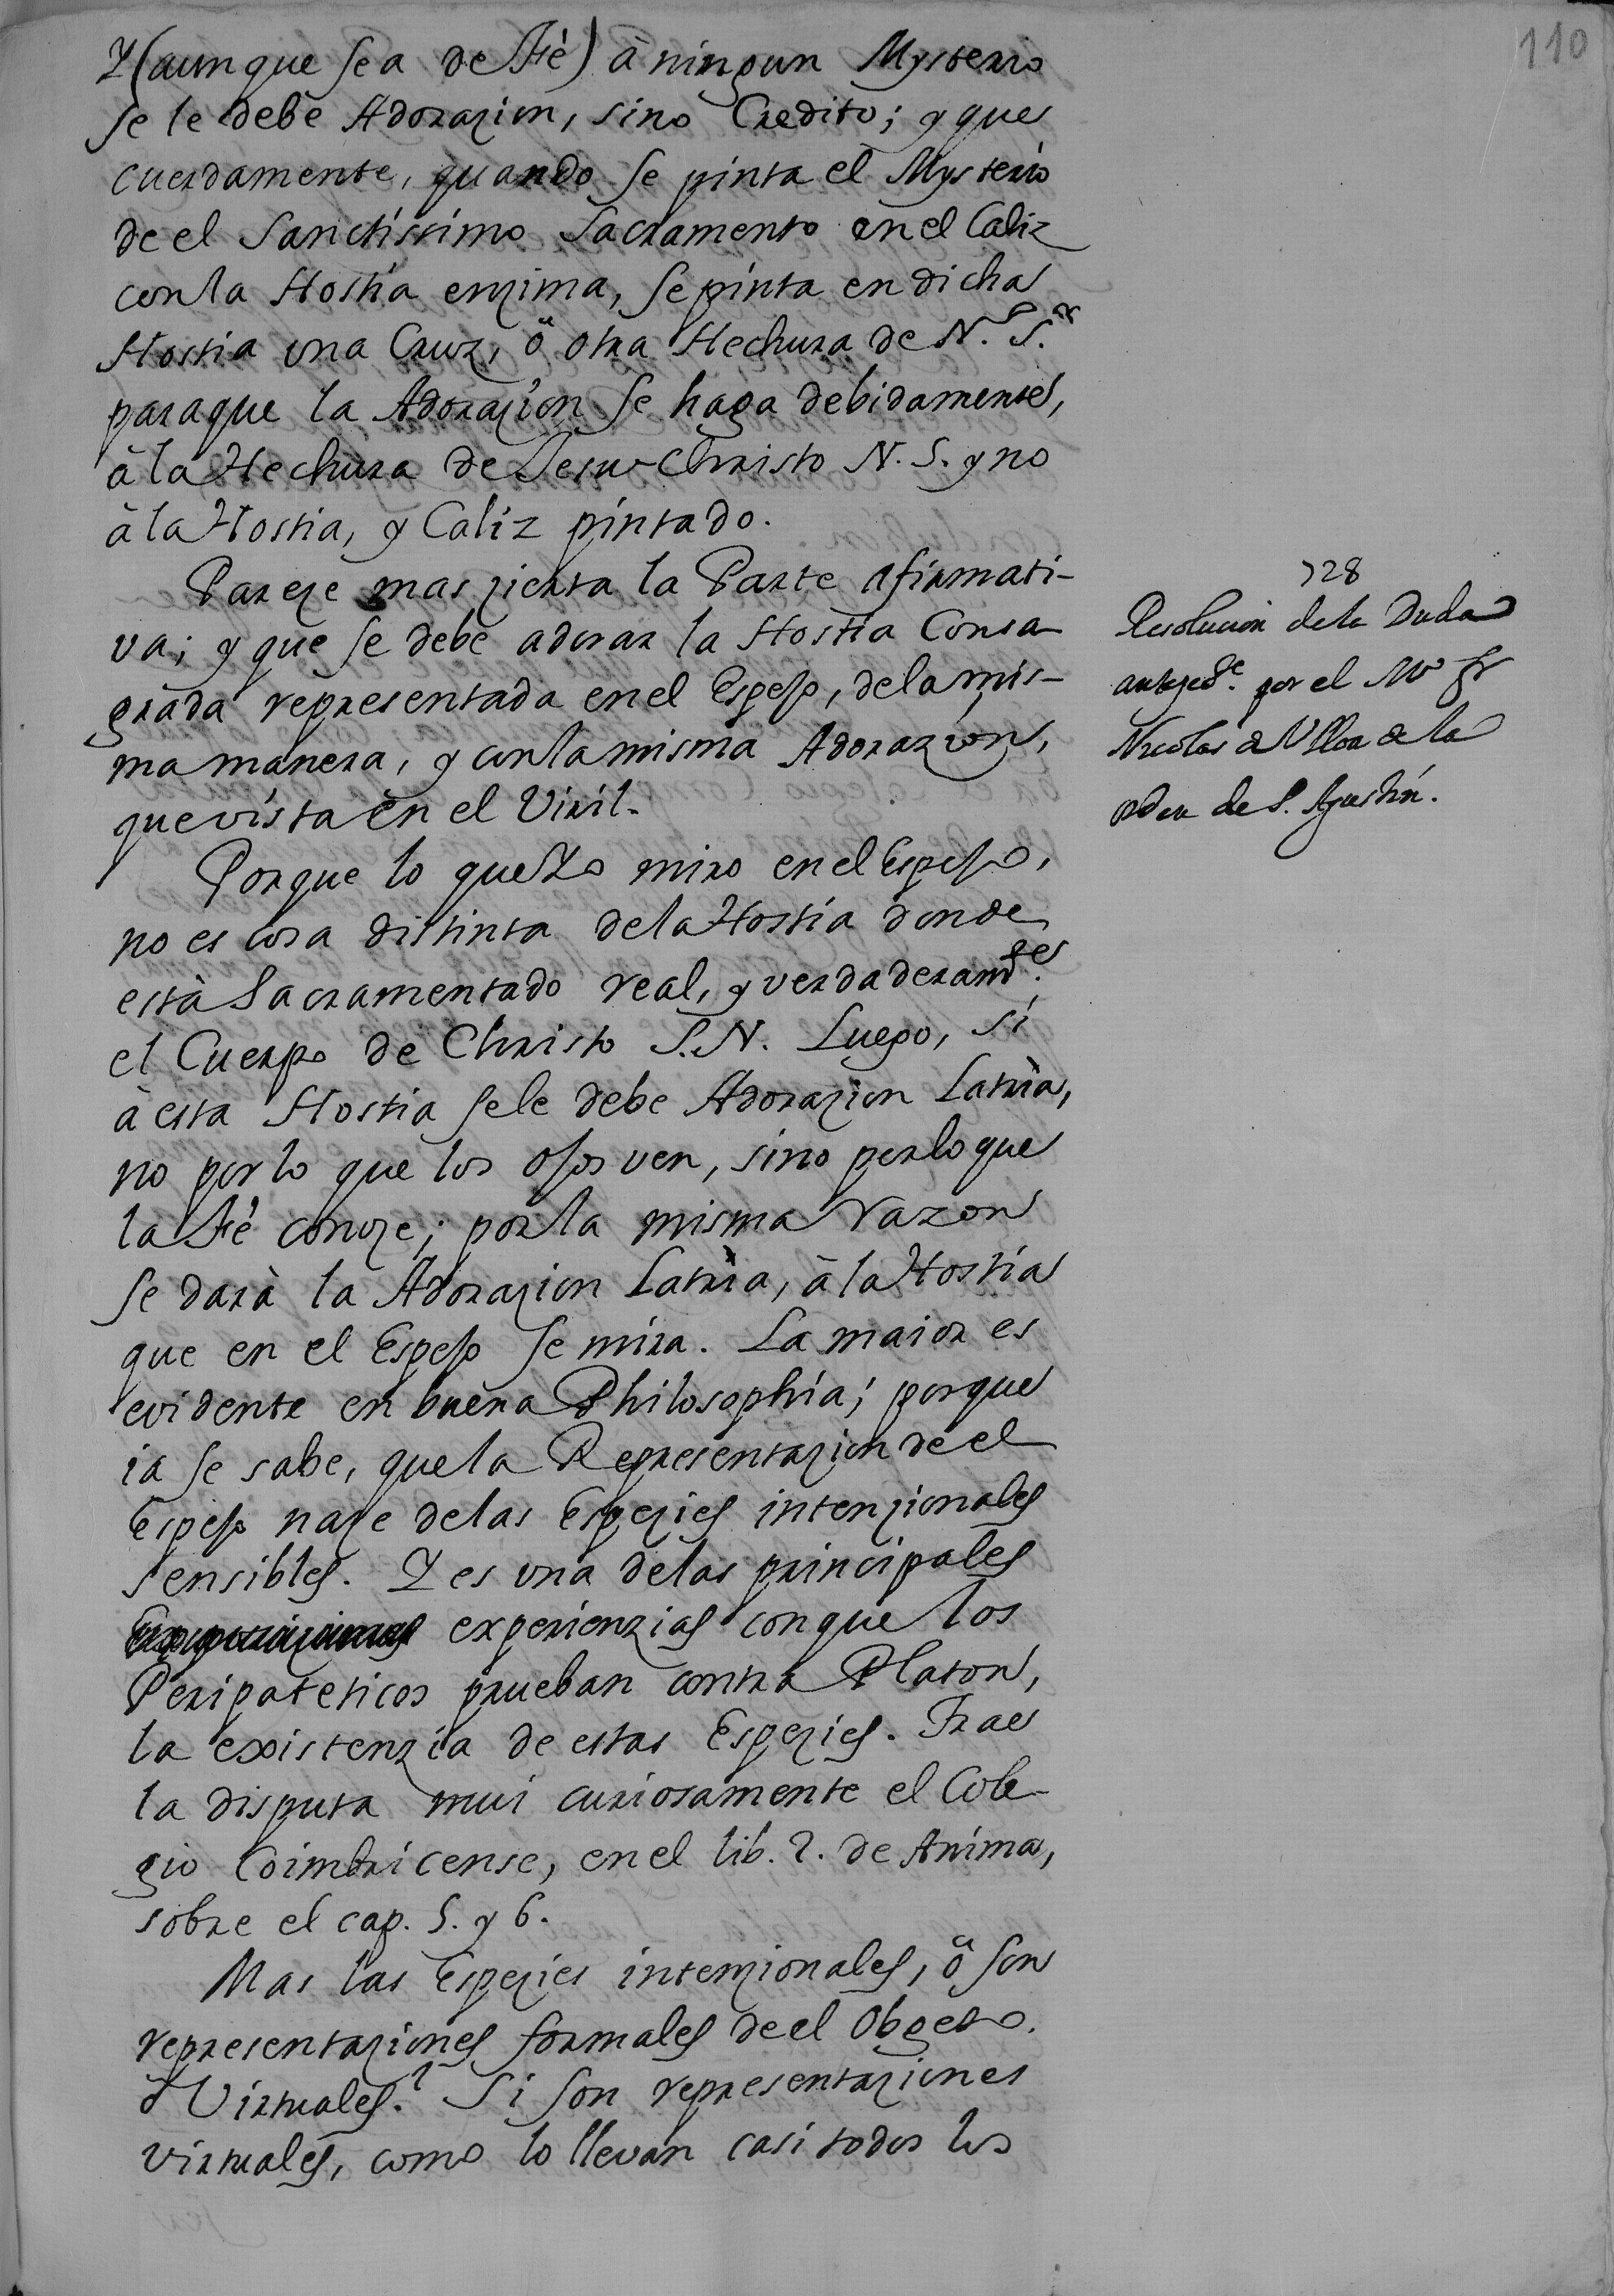 110
Y (aunque sea de Fè) â ningun Mysterio
se le debe Adorazion, sino Credito; y que
cuerdamente, quando se pinta el Mysterio
de el Sanctissimo Sacramento en el Caliz
con la Hostia enzima, se pinta en dicha
Hostia una Cruz, ô otra Hechura de N. S.r
paraque la Adorazion se haga debidamente,
â la Hechura de Jesu-Christo N. S. y no
â la Hostia, y Caliz pintado.
Pareze mas zierta la Parte afirmati-
va; y que se debe adorar la Hostia Consa-
grada representada en el Espejo, de la mis-
ma manera, y con la misma Adorazion,
que vista en el Viril.
Porque lo que Yo miro en el Espejo,
no es cosa distinta de la Hostia donde
està Sacramentado real, y verdaderam.te
el Cuerpo de Christo S. N. Luego, si
â esta Hostia se le debe Adorazion Latria,
no por lo que los ojos ven, sino por lo que
la Fè conoze; por la misma razon
se darà la Adorazion Latria, â la Hostia
que en el Espejo se mira. La maior es
evidente en buena Philosophia; porque
ia se sabe, que la Representazion de el
Espejo naze de las Espezies intenzionales
sensibles. Y es una de las principales
experienzias con que los
Peripateticos prueban contra Platon,
la existenzia de estas Espezies. Trae
la disputa mui curiosamente el Cole-
gio Coimbricense, en el lib. 2. de Anima,
sobre el cap. 5. y 6.
Mas las Espezies intenzionales, ô son
representaziones formales de el Obgeto.
ô Virtuales? Si son representaziones
virtuales, como lo llevan casi todos los
728
Resolucion de la Duda
antezed.e por el Mo Fr
Nicolas de Ulloa de la
orden de S. Agustin.